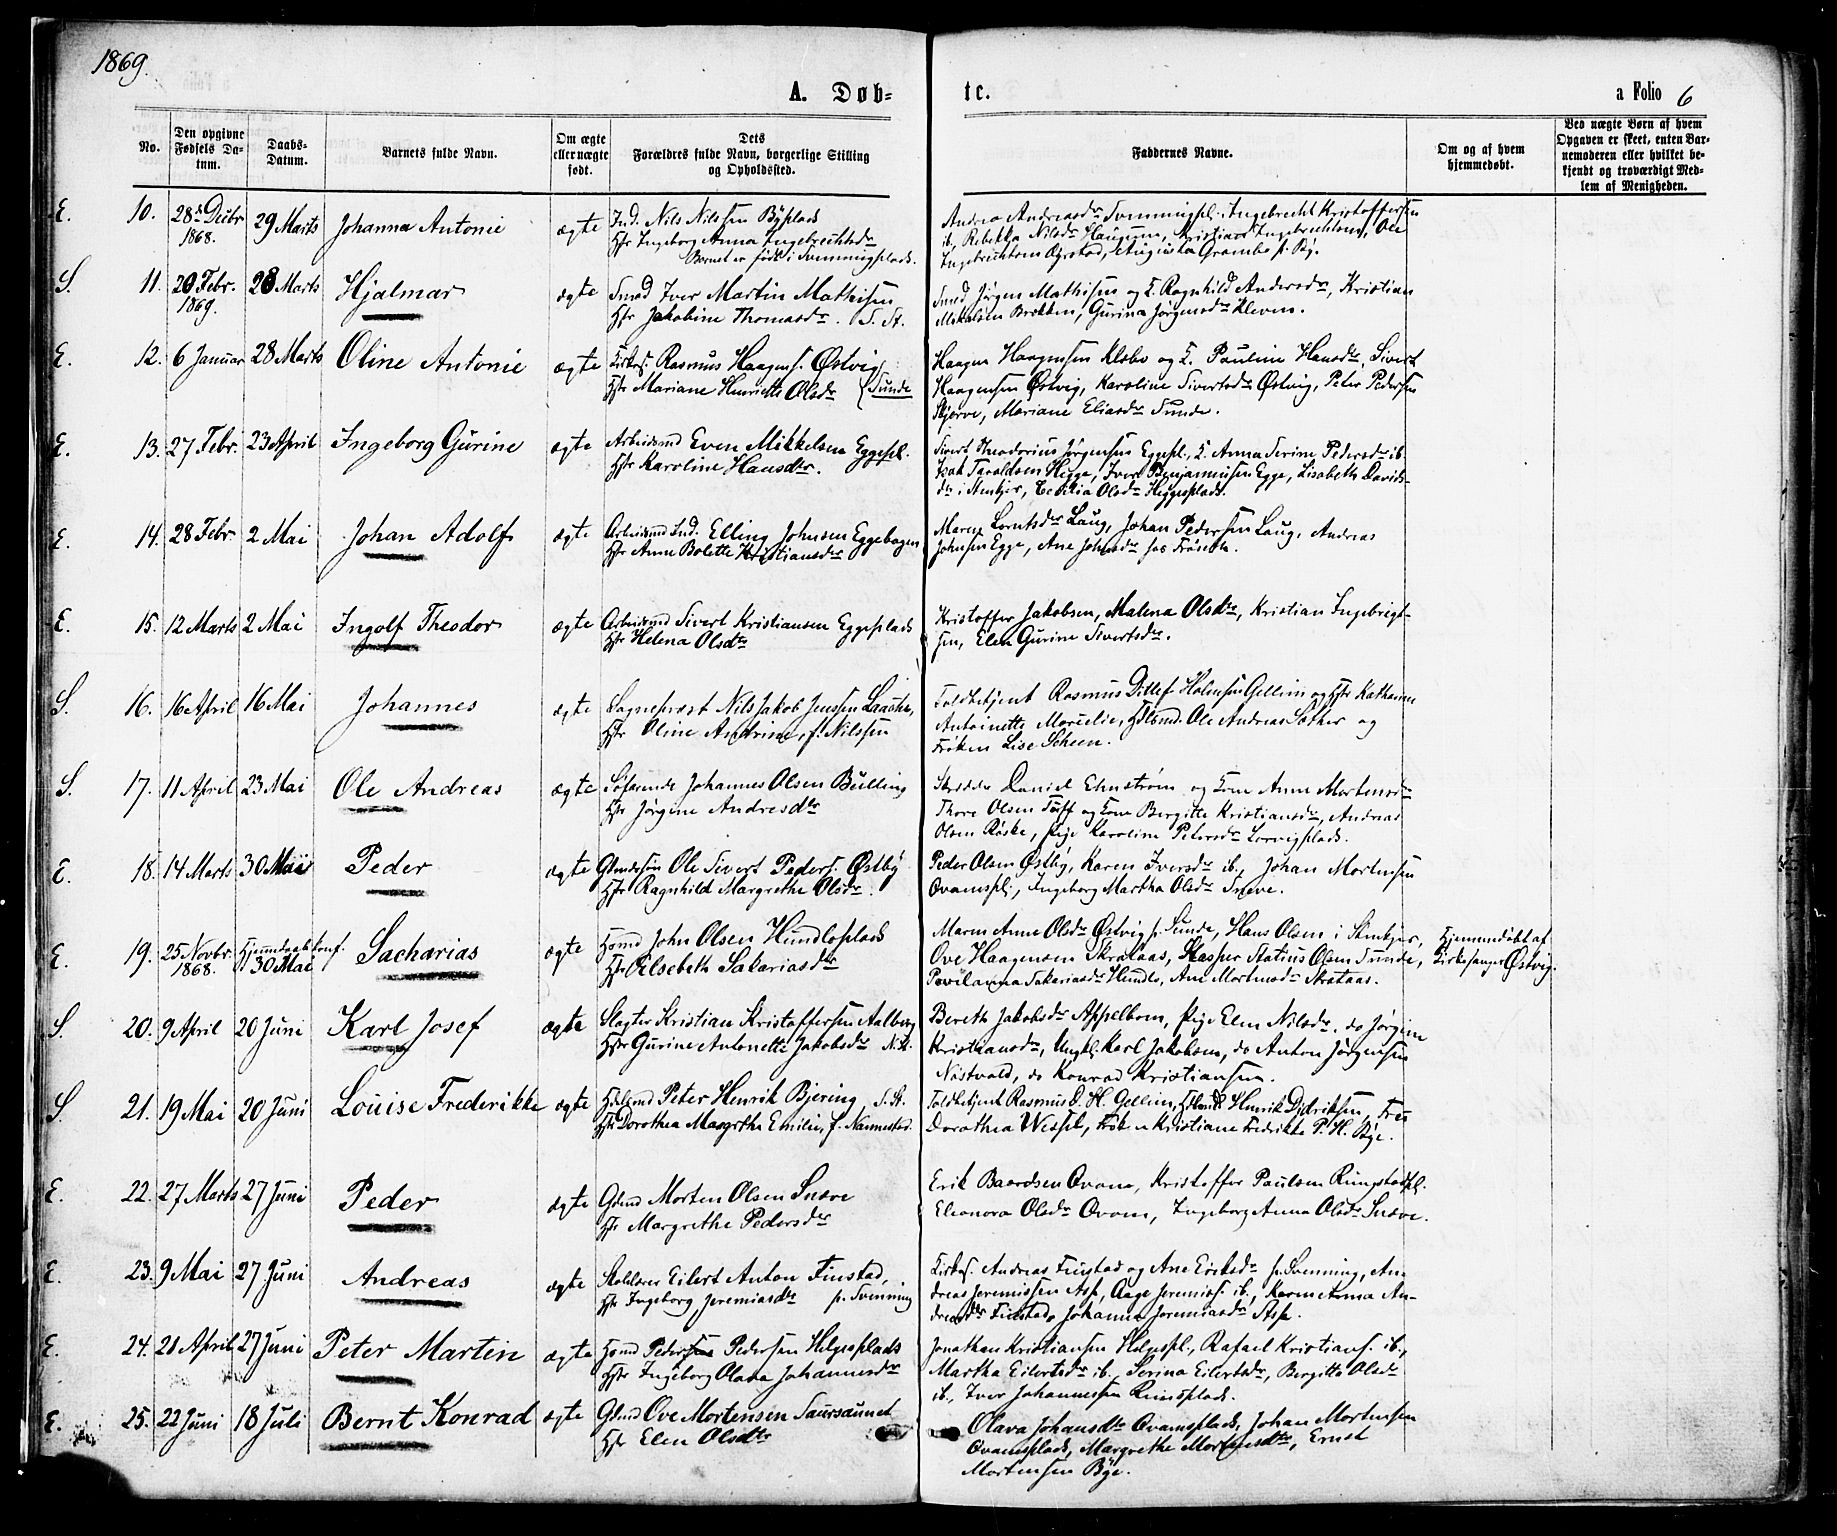 1869.
A. Døb-
te.
a Folio 6
No.
Den opgivne Fødsels Da-tum.
Daabs-Datum.
Barnets fulde Navn.
Om ægte eller uægte født.
Dets Forældres fulde Navn, borgerlige Stilling og Opholdssted.
Faddernes Navne.
Om og af hvem hjemmedøbt.
Ved uægte Børn af hvem Opgaven er skeet, enten Bar-nemoderen eller hvilket be-kjendt og troværdigt Med-lem af Menigheden.
E. 10. 28de Decbr 29 Marts Johanna Antonie ægte Ind. Nils Nilssen Byplads
1868. Hstr Ingeborg Anna Ingebrechtsdr
Barnet er født i Svenningplads.
Andrea Andreasdr Svenningpl. Ingebrecht Kristoffersen
ib, Rebekka Nilsdr Haugum, Kristian Ingebrechtsen, Ole
Ingebrichtsen
S. 11. 20 Febr. 28 Marts Hjalmar ægte Smed Iver Martin Mathisen
1869. Hstr Jakobine Thomasdr. S. St.
Smed Jørgen Mathisen og K. Ragnhild Andersdr, Kristian
Mikalsen Brekken, Gurina Jørgensdr Kleven.
E. 12. 6 Januar 28 Marts Oline Antonie ægte Kirkes. Rasmus Haagens. Østvig
Hstr Mariane Henriette Olsdr Sunde
Haagen Haagensen Klæbo og K. Pauline Hansdr, Sivert
Haagensen Østvig, Karoline Sivertsdr Østvig, Peter Pedersen
Skjerve, Mariane Eliasdr Sunde.
E. 13. 27 Febr. 23 April Ingeborg Gurine ægte Arbeidsmd Even Mikkelsen Eggepl.
Hstr Karoline Hansdtr.
Sivert Theodorius Jørgensen Eggepl., K. Anna Serine Pedersdr ib.
Isak Taraldsen Hegge, Iver Benjaminsen Egge, Lisabeth Davids-
dr i Stenkjer, Cecilia Olsdr Heggesplads.
E. 14. 28 Febr. 2 Mai Johan Adolf ægte Arbeidsmd Ind. Elling Johnsen Eggebogen
Hstr Anne Bolette Kristiansdr
Maren Lorntsdr Laug, Johan Pedersen Laug, Andreas
Johnsen Egge, Ane Johnsdr
E. 15. 12 Marts 2 Mai Ingolf Theodor ægte Arbeidsmd Sivert Kristiansen Eggeplads
Hstr Helena Olsdtr
Kristoffer Jakobsen, Malena Olsdtr, Kristian Ingebrigt-
sen, Elen Gurine Sivertsdr.
S. 16. 16 April 16 Mai Johannes ægte Sognepræst Nils Jakob Jensen Laache,
Hstr Oline Andrine, f. Nilssen
Toldbetjent Rasmus Ditlef Holmsen Gellein og Hstr Kathrine
Antoinette Marcelie, Hdlsmd. Ole Andreas Sæther og
Frøken Lise Scheen.
S. 17. 11 April 23 Mai Ole Andreas ægte Søfarende Johannes Olsen Bulling
Hstr Jørgine Andresdtr
Skrædder Daniel Ehnstrøm og Kone Anne Mortensdr
Thore Olsen Toff og Kone Bergitte Kristiansdr, Andreas
Olsen Røske, Pige Karoline Petersdr
E. 18. 14 Marts 30 Mai Peder ægte Gbrdssøn Ole Sivert Peders. Østby
Hstr Ragnhild Margrethe Olsdr.
Peder Olsen Østby, Karen Iversdr ib., Johan Mortensen
Qvamspl., Ingeborg Martha Olsdr Sneve.
E. 19. 25 Novbr. Hjemmdaab konf. Sacharias ægte Hsmd John Olsen Hundloplads
1868. 30 Mai Hstr Elsebeth Sakariasdtr
Maren Anne Olsdr Østvig p. Sunde, Hans Olsen i Stenkjer,
Ove Haagensen Strataas, Kasper Statius Olsen Sunde,
Povilanna Sakariasdr Hundlo, Ane Mortensdr Strataas.
Hjemmedøbt af
Kirkesanger Østvig.
S. 20. 9 April 20 Juni Karl Josef ægte Slagter Kristian Kristoffersen Aalberg
Hstr Gurine Antonette Jakobsdr N. St.
Bereth Jakobsdr Appelbom, Pige Elen Nilsdr. do Jørgine
Kristiansdr, Ungkl. Karl Jakobsen, do Anton Jørgensen
Nøstvold, do Konrad Kristiansen.
S. 21. 19 Mai 20 Juni Louise Frederikke ægte Hdlsmd Peter Henrik Bjering S. St.
Hstr Dorothea Margrthe Emilie, f. Nannestad.
Toldbetjent Rasmus D. H. Gellein, Hdlsmd Henrik Didriksen, Fru
Dorothea Wessel, Frøken Kristiane Fredrikke P. H. Bye.
E. 22. 27 Marts 27 Juni Peder ægte Gbmd Morten Olsen Sneve
Hstr Margrethe Pedersdtr
Erik Baardsen Qvam, Kristoffer Paulsen Rungstadpl.
Eleonora Olsdr Qvam, Ingeborg Anna Olsdr Sneve.
E. 23. 9 Mai 27 Juni Andreas ægte Skolelærer Eilert Anton Finstad,
Hstr Ingeborg Jeremiasdtr p. Svenning
Kirkes. Andreas Finstad og Ane Eriksdr p. Svenning, An-
dreas Jeremissen Asp, Aage Jeremis. ib., Karen Anna An-
dreasdtr Finstad, Johanna Jeremiasdr Asp.
E. 24. 21 April 27 Juni Peter Martin ægte Hsmd Peder Pedersen Helgesplads
Hstr Ingeborg Olava Johannesdr
Jonathan Kristiansen Helgespl., Rafael Kristians. ib.,
Martha Eilertsdr ib., Serina Eilertsdr, Bergitta Olsdr
ib., Iver Johannessen Reinsplads.
E. 25. 22 Juni 18 Juli Bernt Konrad ægte Gbmd Ove Mortensen Saursaunet
Hstr Elen Olsdtr
Olava Johansdtr Qvamsplads, Johan Mortensen
Qvamsplads, Margrethe Mortensdtr, Ernst
Mortensen Bye.